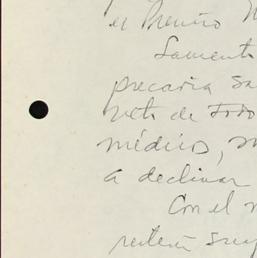 el Premio N
Lamento
precaria sa
veto de todo
médico, m
a declinar
Con el m